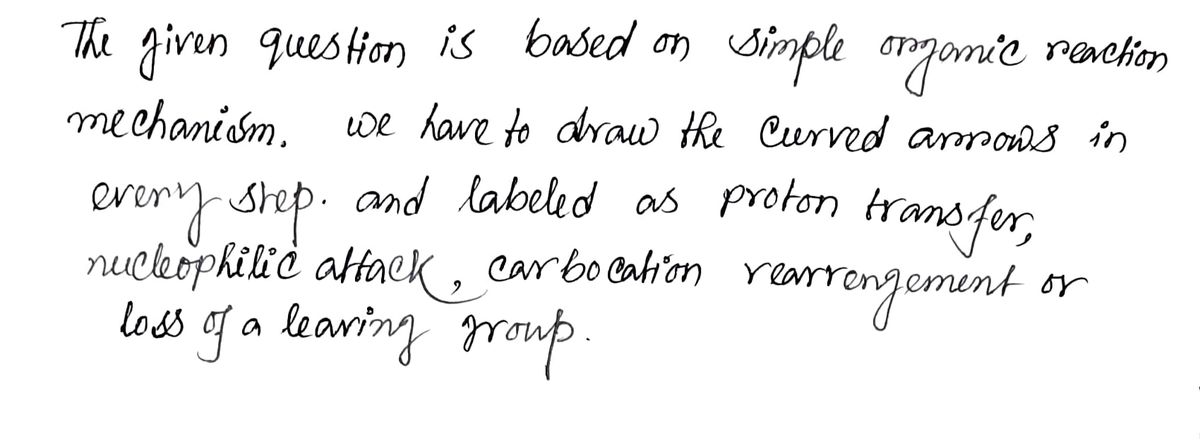 The given question is based on simple organic reaction
mechanism. we have to draw the curved arrows in
every step. and labeled as proton transfer,
nucleophilic attack, carbocation rearrengement or
loss of a leaving group.